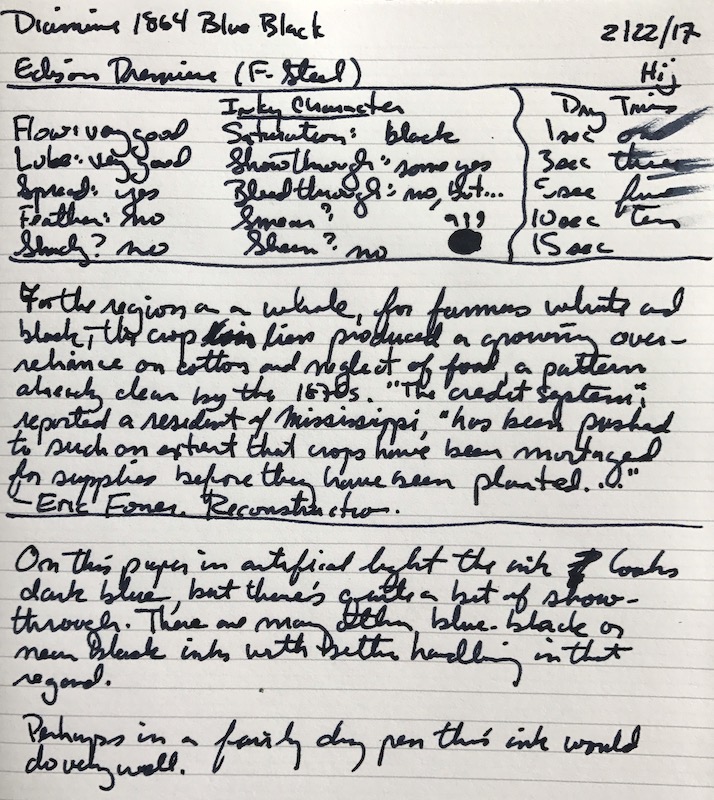 Diamine 1864 Blue Black 2/22/17
Edison Premiere (F-Steel) Hij
Inky Character Dry Times
Flow: very good Saturation: black 1 sec one
Lube: very good Showthrough: some yes 3 sec three
Spread: yes Bleedthrough: no, but... 5 sec five
Feather: no Smear? 10 sec ten
Shady? no Sheen? no 15 sec
For the region as a whole, for farmers white and
black, the crop liens produced a growing over-
reliance on cotton and neglect of food, a pattern
already clear by the 1870s. "The credit system",
reported a resident of Mississippi, "has been pushed
to such an extent that crops have been mortgaged
for supplies before they have been planted. . ."
- Eric Foner. Reconstruction.
On this paper in artifical light the ink looks
dark blue, but there's quite a bit of show-
through. There are many other blue-black or
near black inks with better handling in that
regard.
Perhaps in a fairly dry pen this ink would
do very well.